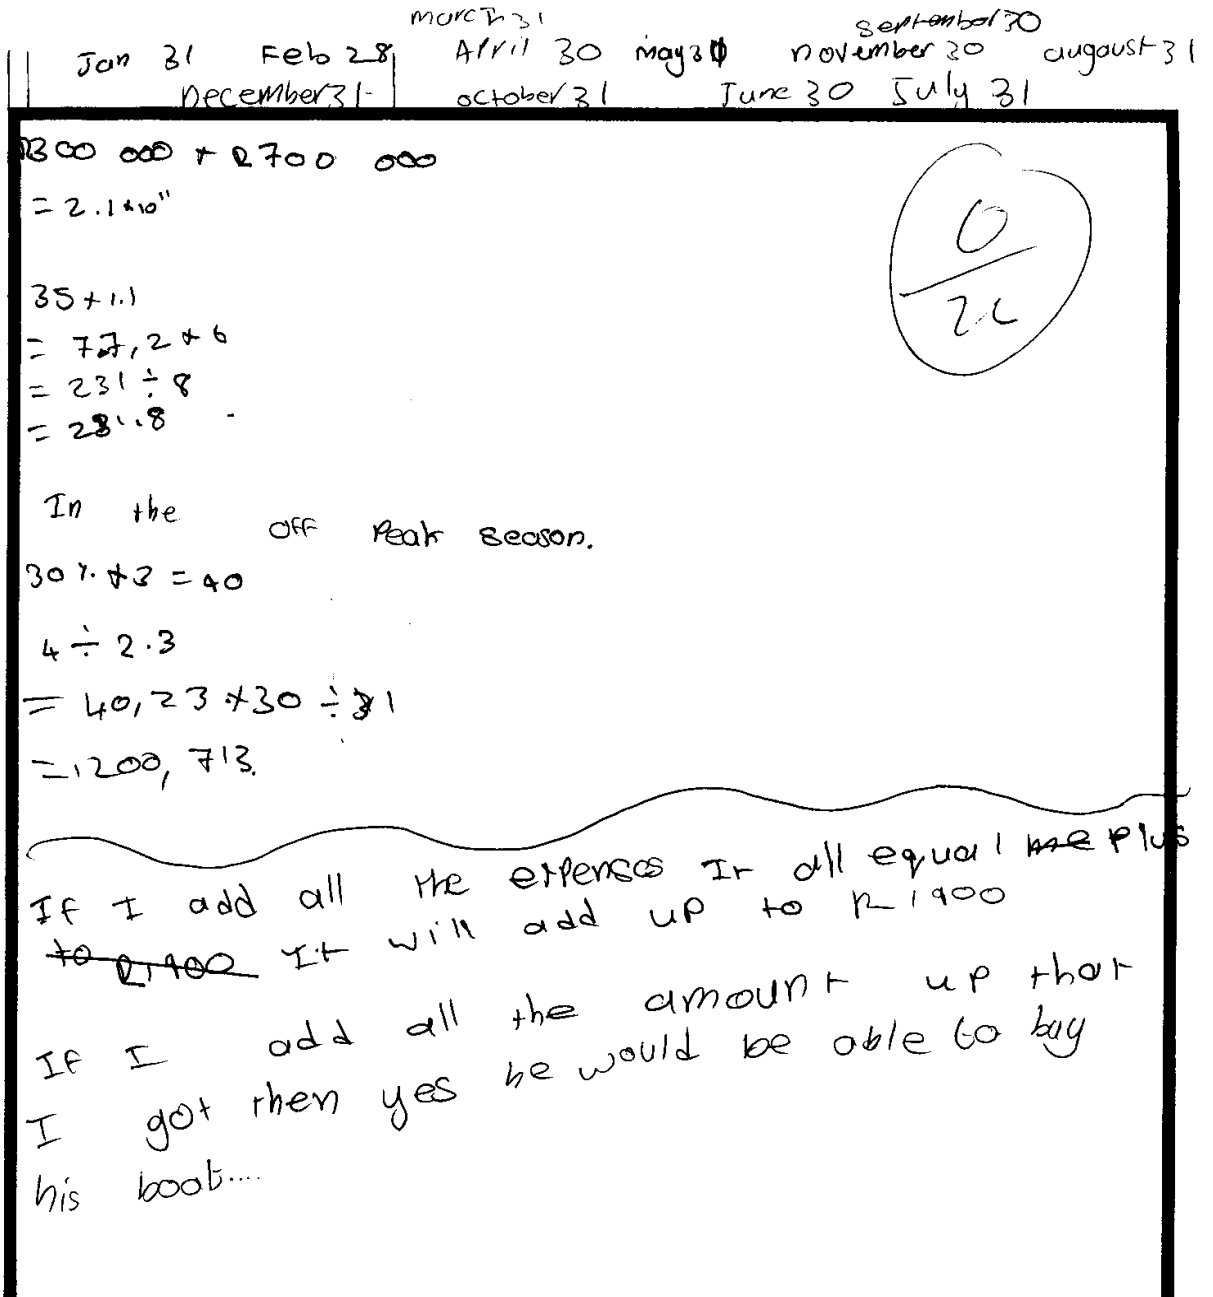 march 31 September 30
Jan 31 Feb 28 April 30 may 31 november 30 augaust 31
December 31 october 31 June 30 July 31
R300 000 × R700 000
= 2.1×10¹¹
0
35 × 1.1
= 77,2 × 6
= 231 ÷ 8
In the off Peak season.
30% × 3 = 90
4 ÷ 2.3
= 40,23 × 30 ÷ 31
= 1200, 713.
If I add all the expenses It all equal plus
to R1900 It will add up to R1900
If I add all the amount up that
I got then yes he would be able to buy
his boat....